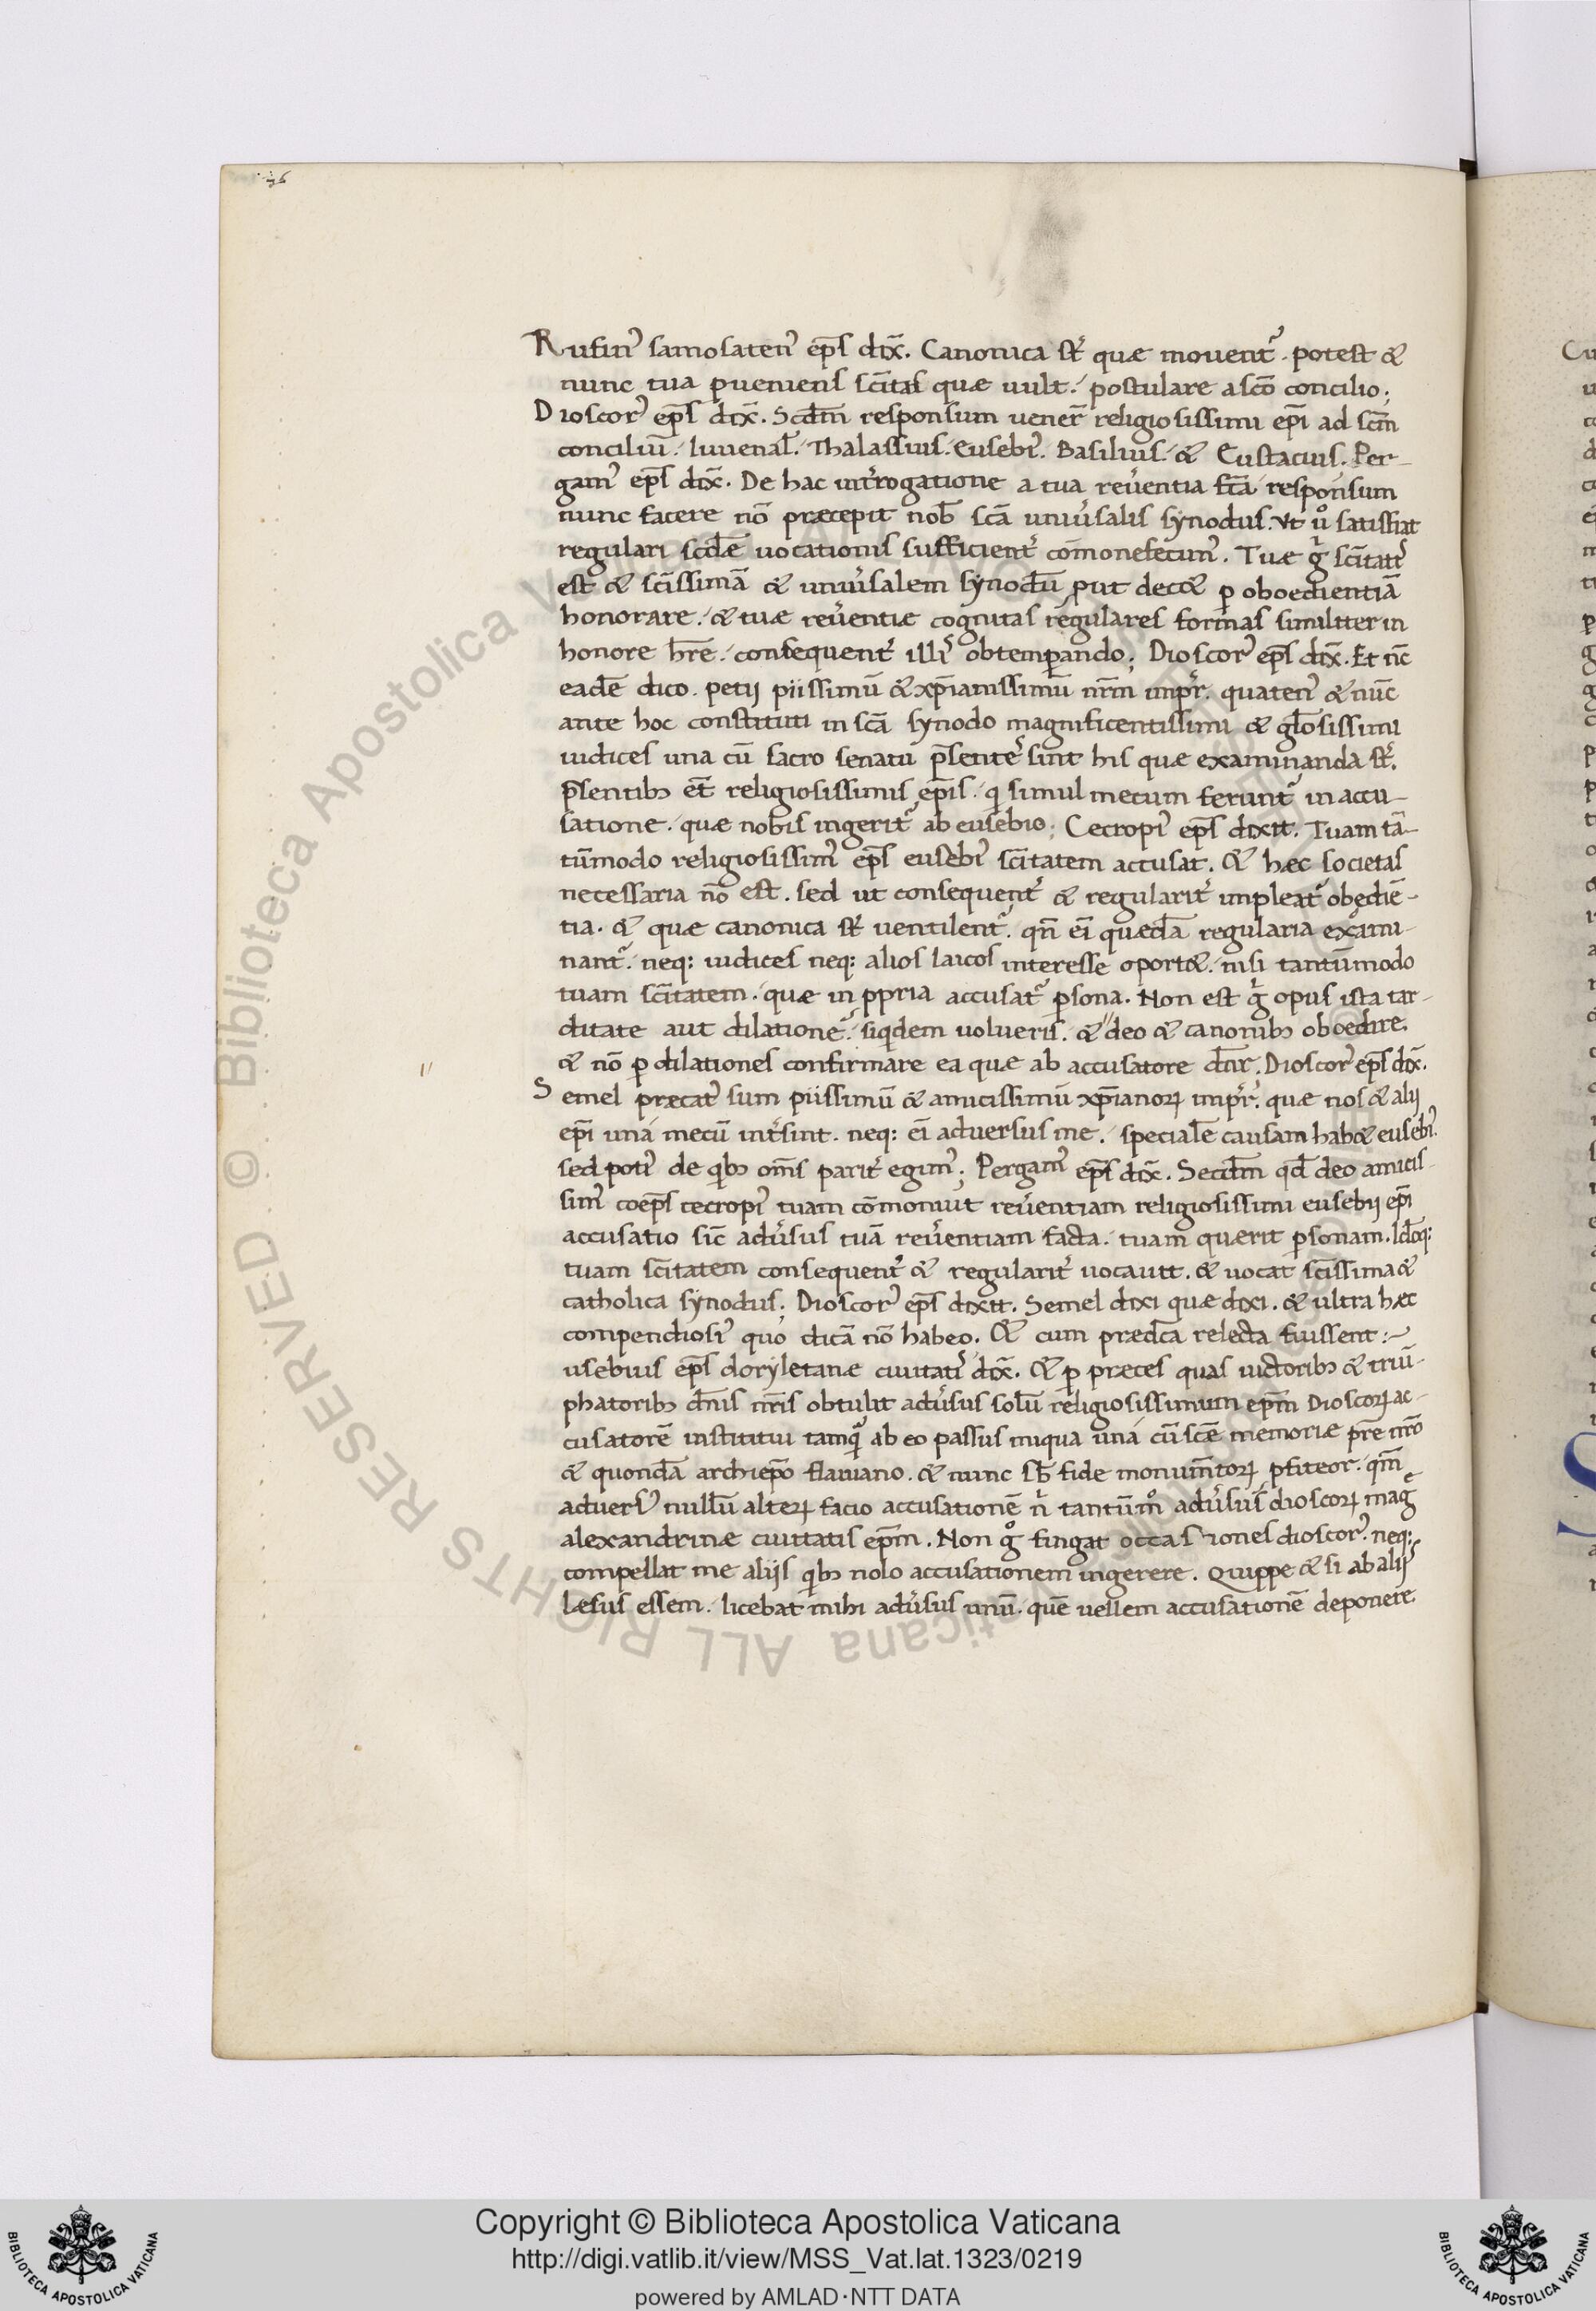 Rufin᾽ samosaten᾽ ep̄s dix̄. Canonica st᾽ quæ mouent᾽. potest &
nunc tua ꝑueniens sc̄itas quæ uult. postulare a sc̄o concilio;
Dioscor᾽ ep̄s dix̄. Scd̄m responsum uener̄ religiosissimi ep̄i ad sc̄m
conciliū. Iuuenal̄. Thalassius. Eusebi᾽. Basilius. & Eustacius. Per-
gam᾽ ep̄s dix̄. De hac int᾽rogatione a tua reu᾽entia fc̄ā responsum
nunc facere nō præcepit nob̄ sc̄ā uniu᾽salis synodus. Vt u° satisfiat
regulari scdǣ uocationis sufficient᾽ cōmonefecim᾽. Tuæ g᾽ sc̄itati᾽
est & sc̄issimā & uniu᾽salem synodū ꝓut dec& ꝑ oboedientiā
honorare. & tuæ reu᾽entiæ cognitas regulares formas similiter in
honore h̄re. consequent᾽ illi᾽ obtemꝑando; Dioscor᾽ ep̄s dix̄. Et nc̄
eadē dico. petij piissimū & xp̄ianissimū nr̄m imp᾽r. quaten᾽ & nūc
ante hoc constituti in sc̄ā synodo magnificentissimi & glōsissimi
iudices una cū sacro senatu p̄sente᾽ sint his quæ examinanda st᾽.
p̄sentibꝫ et̄ religiosissimis ep̄is. qi simul mecum ferunt᾽ in accu-
satione. quæ nobis ingerit᾽ ab eusebio; Cecropi᾽ ep̄s dixit. Tuam tā-
tūmodo religiosissim᾽ ep̄s eusebi᾽ sc̄itatem accusat. & hæc societas
necessaria nō est. sed ut consequent᾽ & regularit᾽ impleat᾽ obędiē-
tia. & quæ canonica st᾽ uentilent᾽. qn̄ ei̅ quædā regularia exami-
nant᾽. neq: iudices neq: alios laicos interesse oport&. nisi tantūmodo
tuam sc̄itatem. quæ in ꝓpria accusat᾽ ꝑsona. Non est g᾽ opus ista tar-
ditate aut dilatione. siqidem uolueris. & deo & canonibꝫ oboedire.
& nō ꝑ dilationes confirmare ea quæ ab accusatore dn̄r. Dioscor᾽ ep̄s dix̄.
Semel præcat᾽ sum piissimū & amicissimū xp̄ianoꝝ imp᾽r. quæ nos & alij
ep̄i una mecū int᾽sint. neq: ei̅ aduersus me. specialē causam hab& eusebi᾽.
sed poti᾽ de qibꝫ om̄s parit᾽ egim᾽; Pergam᾽ ep̄s dix̄. Secd̄m qd̄ deo amicis-
sim᾽ coep̄s cecropi᾽ tuam cōmonuit reu᾽entiam religiosissimi eusebij ep̄i
accusatio sic̄ adu᾽sus tuā reu᾽entiam facta. tuam quærit ꝑsonam. Idcoq:
tuam sc̄itatem consequent᾽ & regularit᾽ uocauit. & uocat sc̄issima &
catholica synodus; Dioscor᾽ ep̄s dixit. Semel dixi quæ dixi. & ultra hæc
compendiosi᾽ quo dicā nō habeo. & cum prædc̄a relecta fuissent:~
usebius ep̄s doryletanæ ciuitati᾽ dix̄. & ꝑ præces quas uictoribꝫ & triū-
phatoribꝫ dn̄is nr̄is obtulit adu᾽sus solū religiosissimum ep̄m Dioscoꝝ ac-
cusatorē institui tamq̄ ab eo passus iniqua una cū sc̄ē memoriæ pr̄e nr̄o
& quondā archiep̄o flauiano. & nunc sb̄ fide monum̄toꝝ ꝓfiteor. qm̄
aduers᾽ nullū alteꝝ facio accusationē n᾽ tantūm° adu᾽sus dioscoꝝ magę
alexandrinæ ciuitatis ep̄m. Non g° fingat occasiones dioscor᾽. neq:
compellat me alijs qibꝫ nolo accusationem ingerere. Quippe & si ab alijs
lesus essem. licebat mihi adu᾽sus unū. quē uellem accusationē deponere.
Copyright © Biblioteca Apostolica Vaticana
http://digi.vatlib.it/view/MSS_Vat.lat.1323/0219
powered by AMLAD·NTT DATA